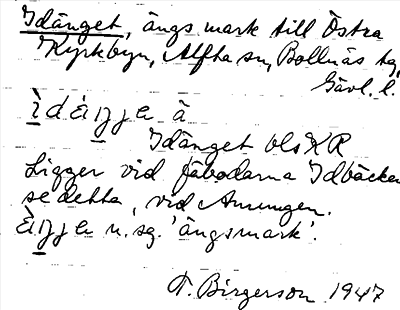 Idänget, ängsmark till Östra
Kyrkbyn, Alfta sn, Bollnäs tg,
Gävl. l.
Idänget bls KR
Ligger vid fäbodarna Idbäcken
se detta, vid Amungen.
n. sg. 'ängsmark'.
T. Birgerson 1947